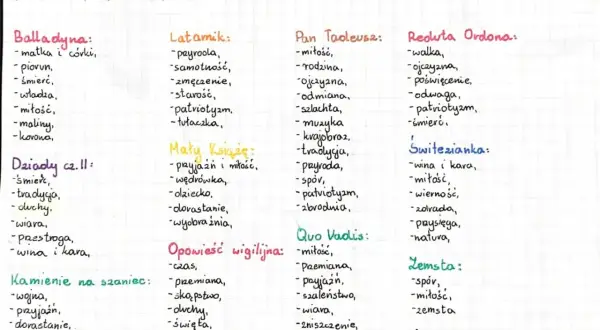 Balladyna:
- matka i córki,
- piorun,
- śmierć,
- władza,
- miłość,
- maliny,
- korona,
Dziady cz.II:
- śmierć,
- tradycja,
- duchy,
- wiara,
- przestroga,
- wina i kara,
Kamienie na szaniec:
- wojna,
- przyjaźń,
- dorastanie,
Latarnik:
- przyroda,
- samotność,
- zmęczenie,
- starość,
- patriotyzm,
- tułaczka,
Mały Książę:
- przyjaźń i miłość,
- wędrówka,
- dziecko,
- dorastanie,
- wyobraźnia,
Opowieść wigilijna:
- czas,
- przemiana,
- skąpstwo,
- duchy,
- święta,
Pan Tadeusz:
- miłość,
- rodzina,
- ojczyzna,
- odmiana,
- szlachta,
- muzyka
- krajobraz
- tradycja,
- przyroda,
- spór,
- patriotyzm,
- zbrodnia,
Quo Vadis:
- miłość,
- przemiana,
- przyjaźń,
- szaleństwo,
- wiara,
- zniszczenie,
Reduta Ordona:
- walka,
- ojczyzna,
- poświęcenie,
- odwaga,
- patriotyzm,
- śmierć,
Świtezianka:
- wina i kara,
- miłość,
- wierność,
- zdrada,
- przysięga,
- natura,
Zemsta:
- spór,
- miłość,
- zemsta